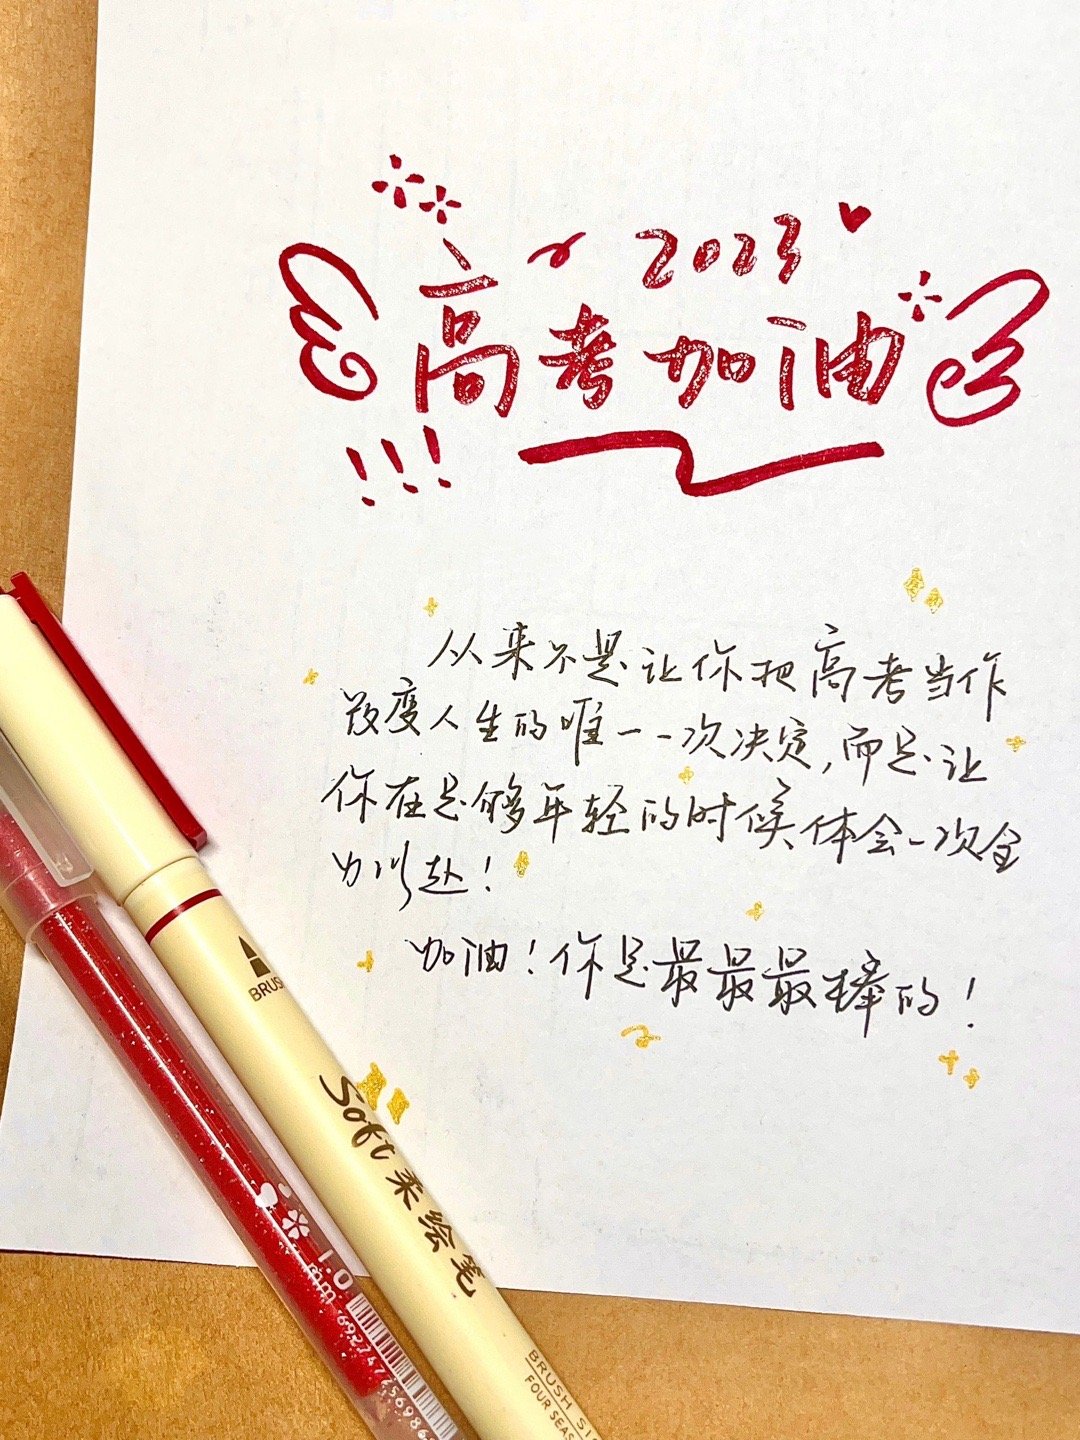 2023
高考加油
!!!
从来不是让你把高考当作
改变人生的唯一一次决定,而是让
你在足够年轻的时候体会一次全
力以赴!
加油!你是最最最棒的!
Soft 柔绘笔
1.0
mm
BRUSH
FOUR